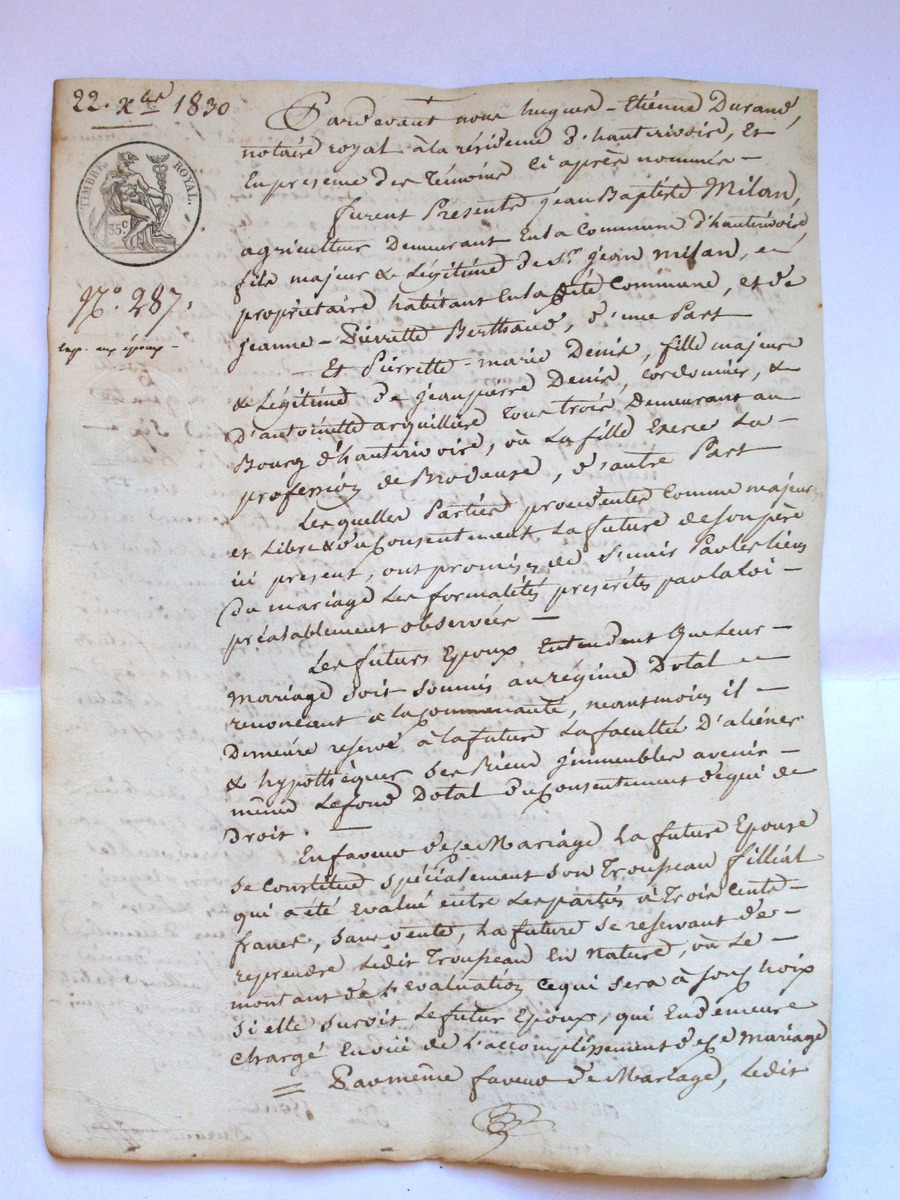 22. xbre 1830
TIMBRE ROYAL.
35c
No. 287.
Exp. aux époux -
Pardevant nous hugues - Etienne Durand,
notaire royal à la résidence d'hauterivoire, Et
En presence des Témoins Ci après nommés -
furent Presents jean Baptiste Milan,
agriculteur Demeurant En la Commune d'hauterivoire
fils majeur & Légitime de Sr. jean milan,
propriétaire habitant En la dite Commune, et de
jeanne - Pierrette Berthaud, d'une Part
- Et Pierrette - marie Denis, fille majeure
& Légitime de jeanpierre Denis, Cordonnier, &
d'antoinette arquillière Tous trois Demeurant au
Bourg d'hauterivoire, où La fille Exerce La -
profession de Brodeuse, d'autre Part
Les quelles Parties procedentes Comme majeures
et Libres & du Consentement La future de son père
ici present, ont promises de S'unir Par les liens
Du mariage Les formalités préscrites par la loi -
préalablement observées -
Les futurs Epoux Entendent Que Leur -
Mariage soit soumis au régime Dotal
renonceant à la Communauté, néantmoins il -
Demeure reservé à la future La faculté D'aliéner
& hypothéquer Ses Biens jmmeubles avenir -
même Le fond Dotal du Consentement de qui de
Droit. -
En faveur de ce Mariage La future Epouse
se Constitue spécialement son Trousseau filliat
qui a été évalué entre Les parties à Trois Cents -
francs, sans vente, La future se reservant de -
reprendre Ledit Trousseau En Nature, où Le -
montant de L'evaluation Ce qui sera à son choix
Si elle survit Le futur Epoux, qui En demeure
chargé Envüe de L'accomplissement de ce Mariage
= Par même faveur de Mariage, Ledit